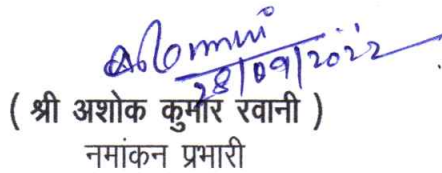 28/09/2022
( श्री अशोक कुमार रवानी )
नमांकन प्रभारी